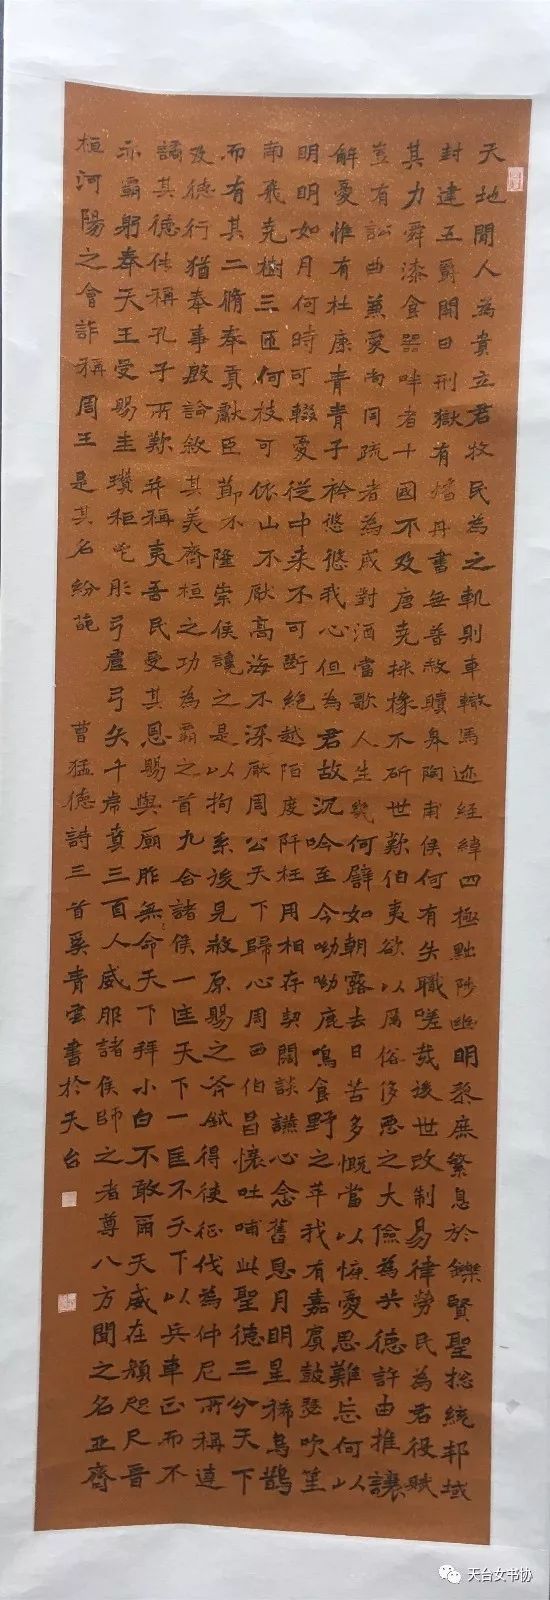 天地閒人為貴立君牧民為之軌則車轍馬迹経緯四極黜陟幽明黎庶繁息於鑠賢聖揔統邦域
封建五爵刑獄有燔丹書無普赦贖皋陶甫侯何有失職嗟哉後世改制易律勞民為君役賦
其力舜漆食器畔者十國不及唐堯採椽不斫世歎伯夷欲以厲俗侈惡之大儉為共德許由推讓
豈有訟曲兼愛尚同疏者為戚對酒當歌人生幾何譬如朝露去日苦多慨當以慷憂思難忘何以
解憂惟有杜康青青子衿悠悠我心但為君故沉吟至今呦呦鹿鳴食野之苹我有嘉賓鼓瑟吹笙
明明如月何時可輟憂從中来不可斷絕越陌度阡枉用相存契闊談讌心念舊恩月明星稀烏鵲
南飛堯樹三匝何枝可依山不厭高海不深厭周公天下歸心周西伯昌懷吐哺此聖德三分天下
而有其二脩奉貢獻臣節不隆崇侯讒之是以拘系後見赦原賜之斧鉞得使征伐為仲尼所稱達
及德行猶奉事殷論敘其美齊桓之功為霸之首九合諸侯一匡天下一匡不天下以兵車正而不
譎其德傳稱孔子所歎并稱夷吾民受其恩賜與廟胙無命天下拜小白不敢爾天威在顏咫尺晉
亦霸躬奉天王受賜圭瓚秬鬯彤弓盧弓矢千虎賁三百人威服諸侯師之者尊八方聞之名亞齊
桓河陽之會詐稱周王是其名紛葩 曹孟德詩三首奚青雲書於天台
天台女书协